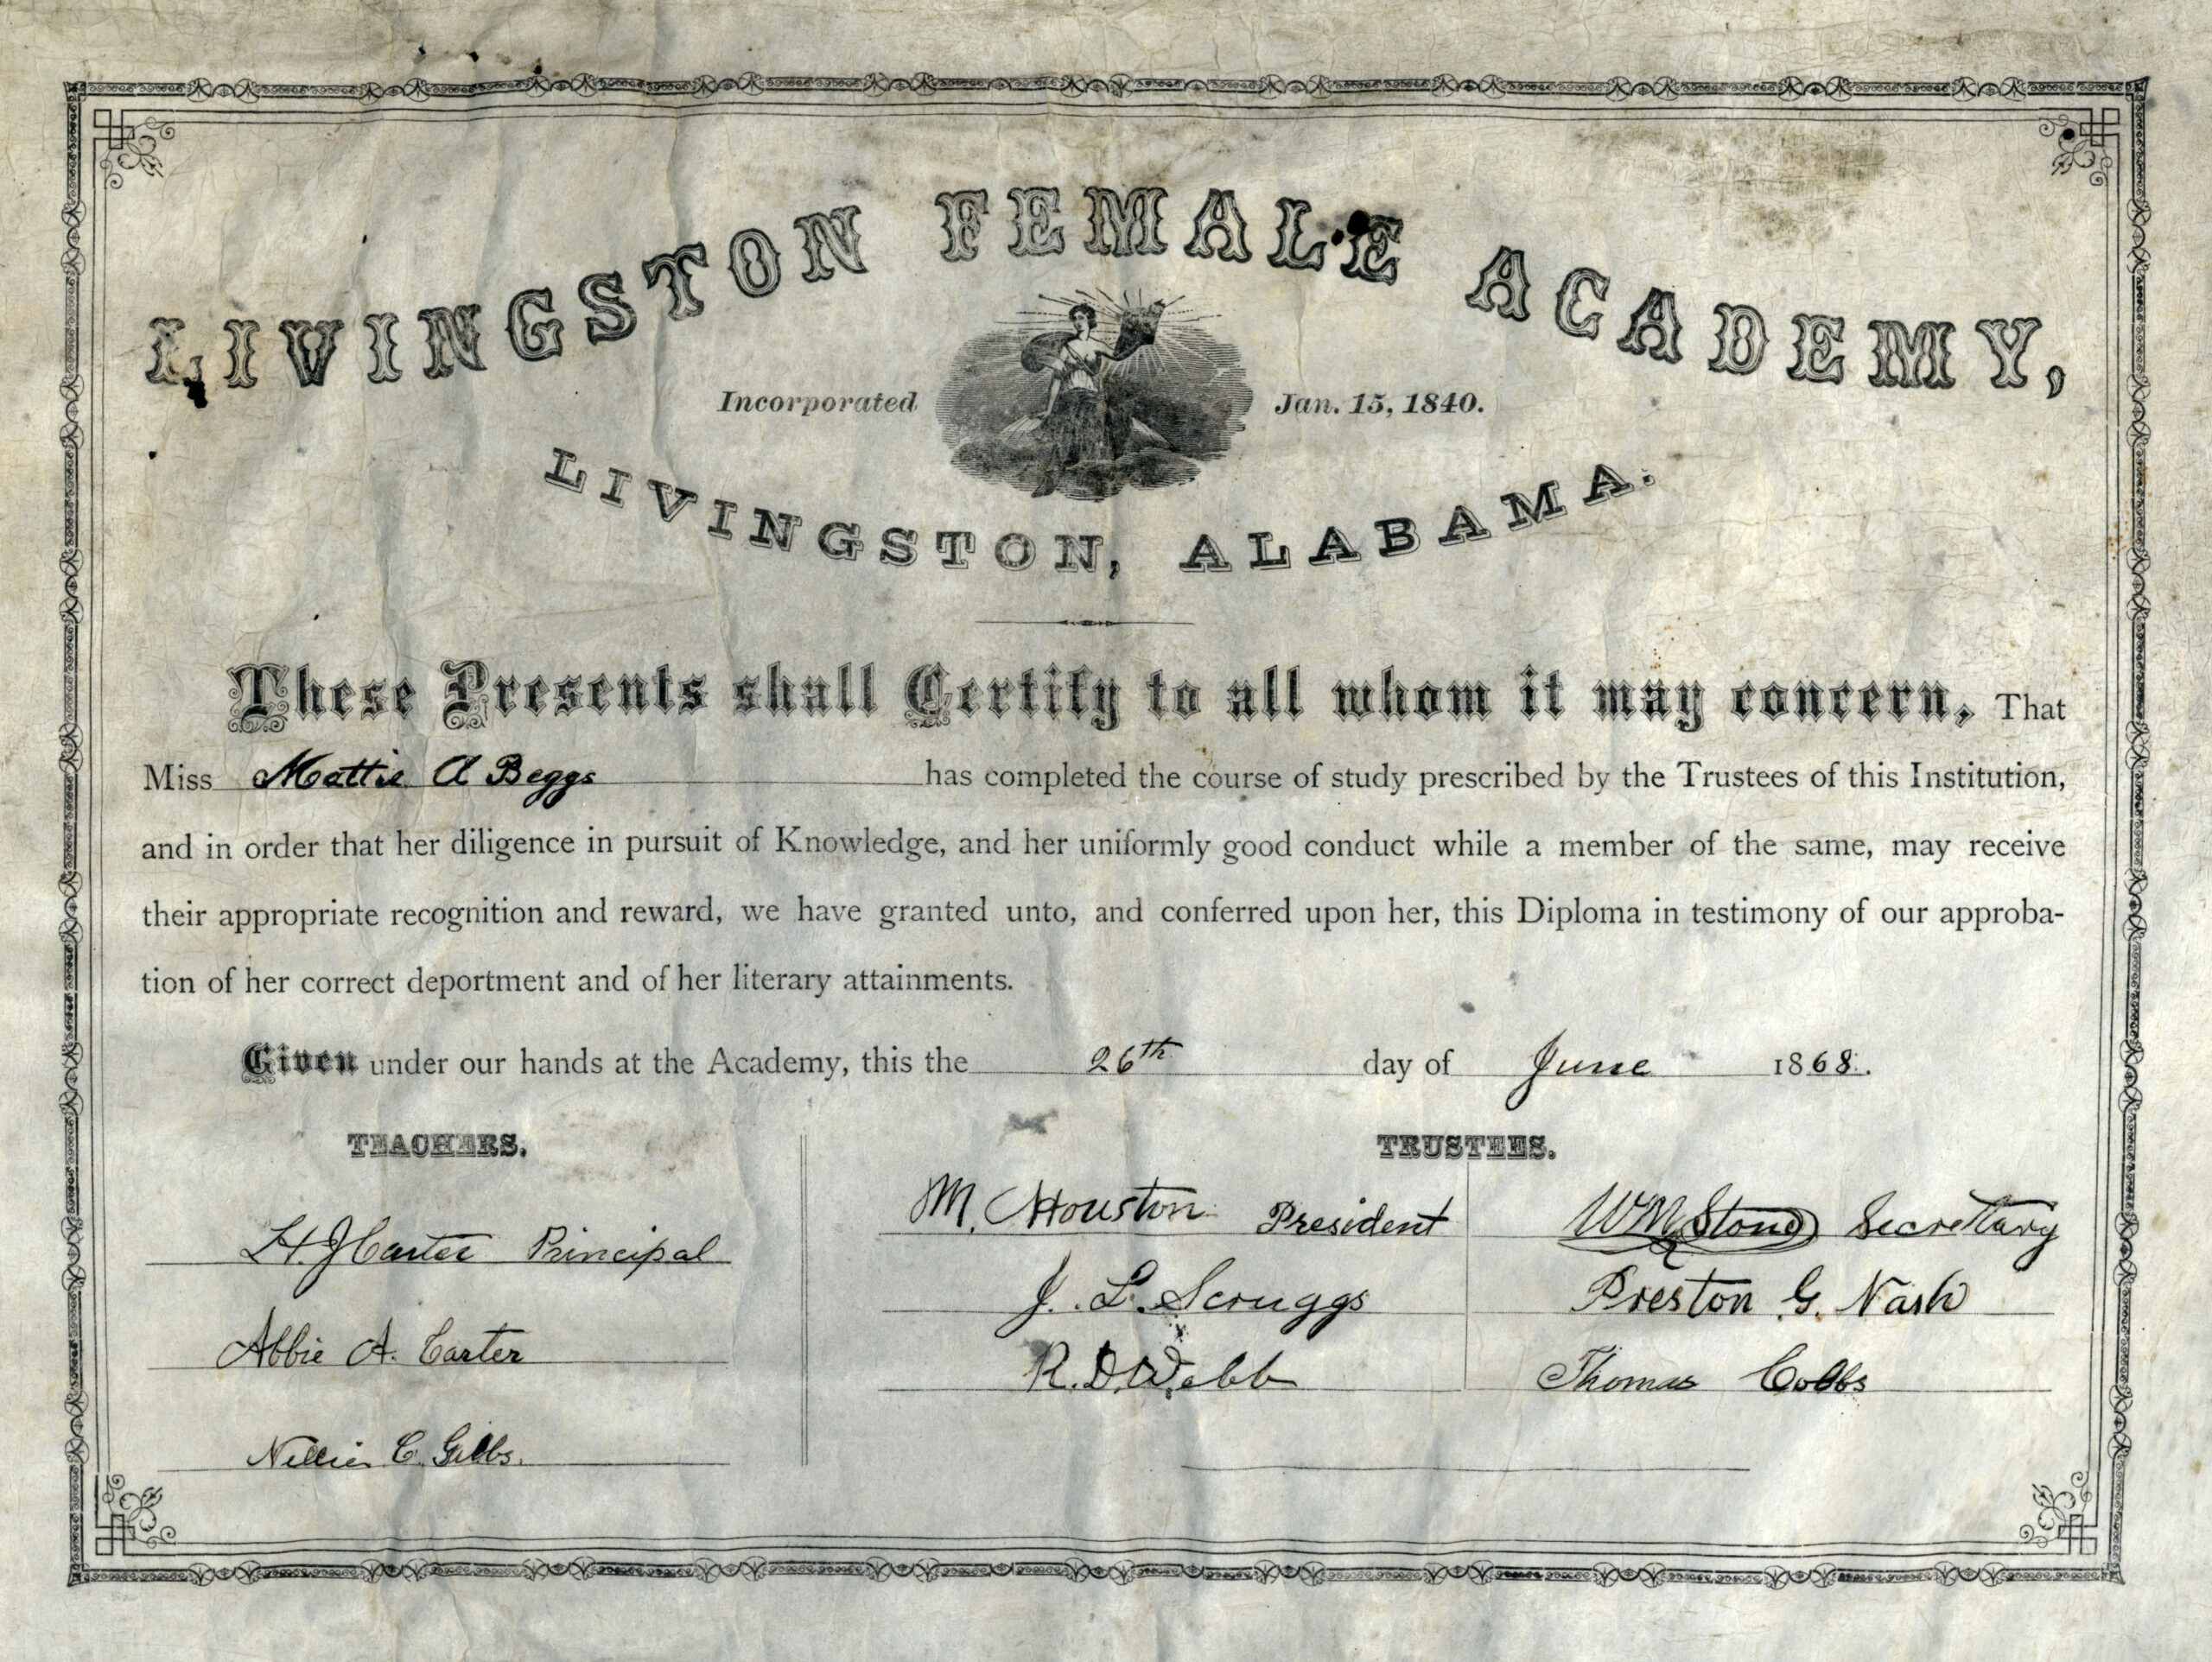 LIVINGSTON FEMALE ACADEMY,
Incorporated Jan. 15, 1840.
LIVINGSTON, ALABAMA.
These Presents shall Certify to all whom it may concern, That
Miss Mattie A Beggs has completed the course of study prescribed by the Trustees of this Institution,
and in order that her diligence in pursuit of Knowledge, and her uniformly good conduct while a member of the same, may receive
their appropriate recognition and reward, we have granted unto, and conferred upon her, this Diploma in testimony of our approba-
tion of her correct deportment and of her literary attainments.
Given under our hands at the Academy, this the 26th day of June 1868.
TEACHERS.
H. J Carter Principal
Abbie A. Carter
Nellie C. Gibbs.
TRUSTEES.
M. C Houston President
J. L. Scruggs
R. D. Webb
WM Stone Secrettary
Preston G. Nash
Thomas Cobbs